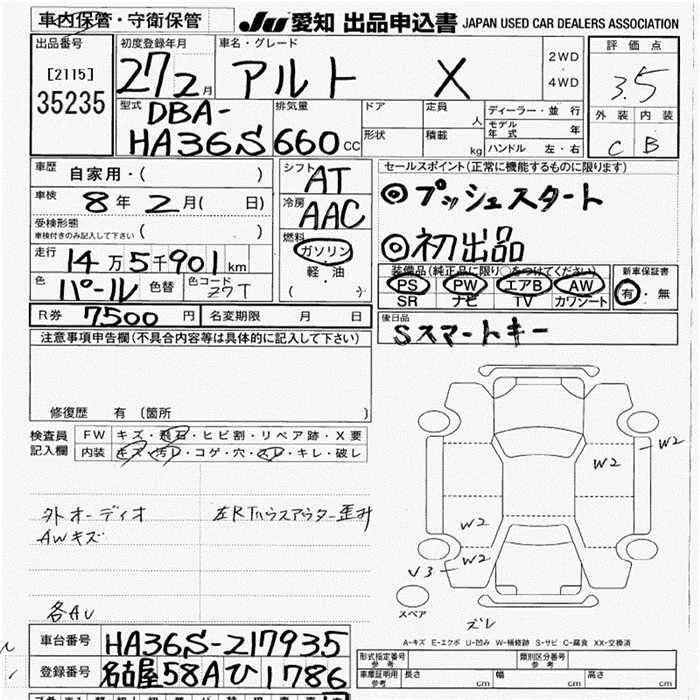 車内保管・守衛保管 JU 愛知 出品申込書 JAPAN USED CAR DEALERS ASSOCIATION
出品番号 初度登録年月 車名・グレード 評価点
[2115] 27 2月 アルト X 2WD 4WD 3.5
35235
型式 DBA- 排気量 ドア 定員 人 ディーラー・並行 外装 内装
HA36S 660cc 形状 積載 kg モデル年式 年
ハンドル 左・右 C B
車歴 自家用・( ) シフト AT セールスポイント(正常に機能するものに限ります)
車検 8年 2月( 日) 冷房 AAC ◎プッシュスタート
受検形態 ( )
車検付きのみ記入して下さい
燃料 ガソリン ◎初出品
走行 14万5千901km 軽・油 装備品(純正品に限り○をつけてください) 新車保証書
( ) PS PW エアB AW 有・無
色 パール 色替 色コード Z7T SR ナビ TV カワシート
R券 7,500円 名変期限 月 日 後日品
Sスマートキー
注意事項申告欄(不具合内容等は具体的に記入して下さい)
修復歴 有 (箇所 )
検査員 FW キズ・飛石・ヒビ割・リペア跡・X要
記入欄 内装 キズ・汚レ・コゲ・穴・スレ・キレ・破レ
W2
W2
外オーディオ 左RTハウスアウター歪み W2
AWキズ
W2
V3
各AU スペア
ズレ
A-キズ E-エクボ U-凹み W-補修跡 S-サビ C-腐食 XX-交換済
車台番号 HA36S-217935
形式指定番号 参考 類別区分番号 参考
登録番号 名古屋58Aひ1786
車庫証明用 参考 長さ cm 幅 cm 高さ cm